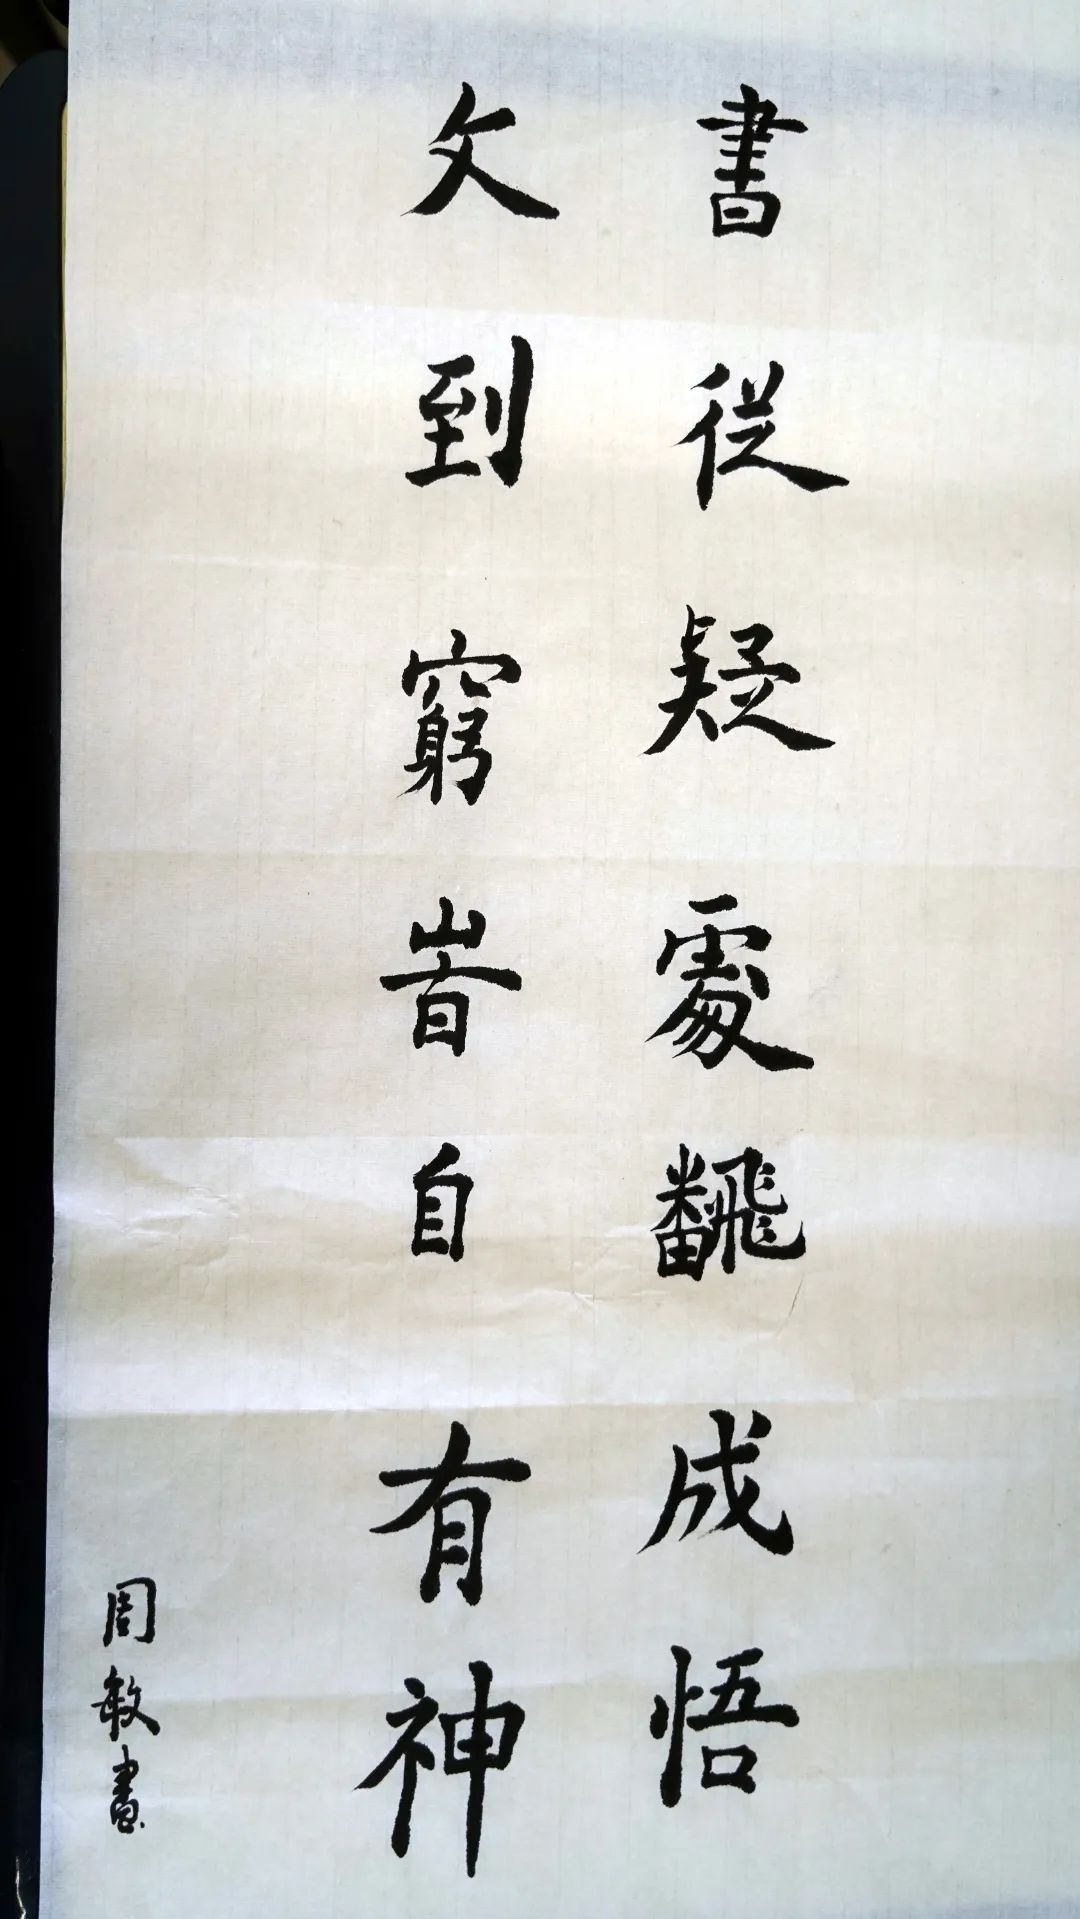 書從疑處翻成悟
文到窮峕自有神
周敏書